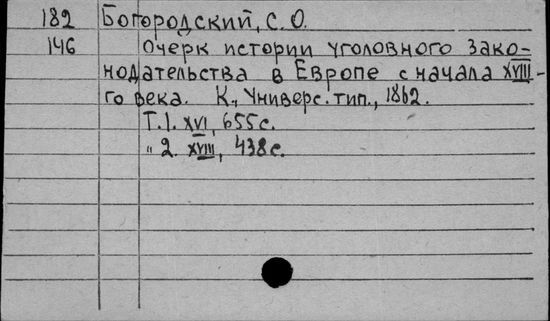 182 Богородский, С. О.
146 Очерк истории уголовного зако-
нодательства в Европе с начала XVIII-
го века. К., Универс. тип., 1862.
Т. 1. XVI, 655 с.
" 2. XVIII, 438 с.